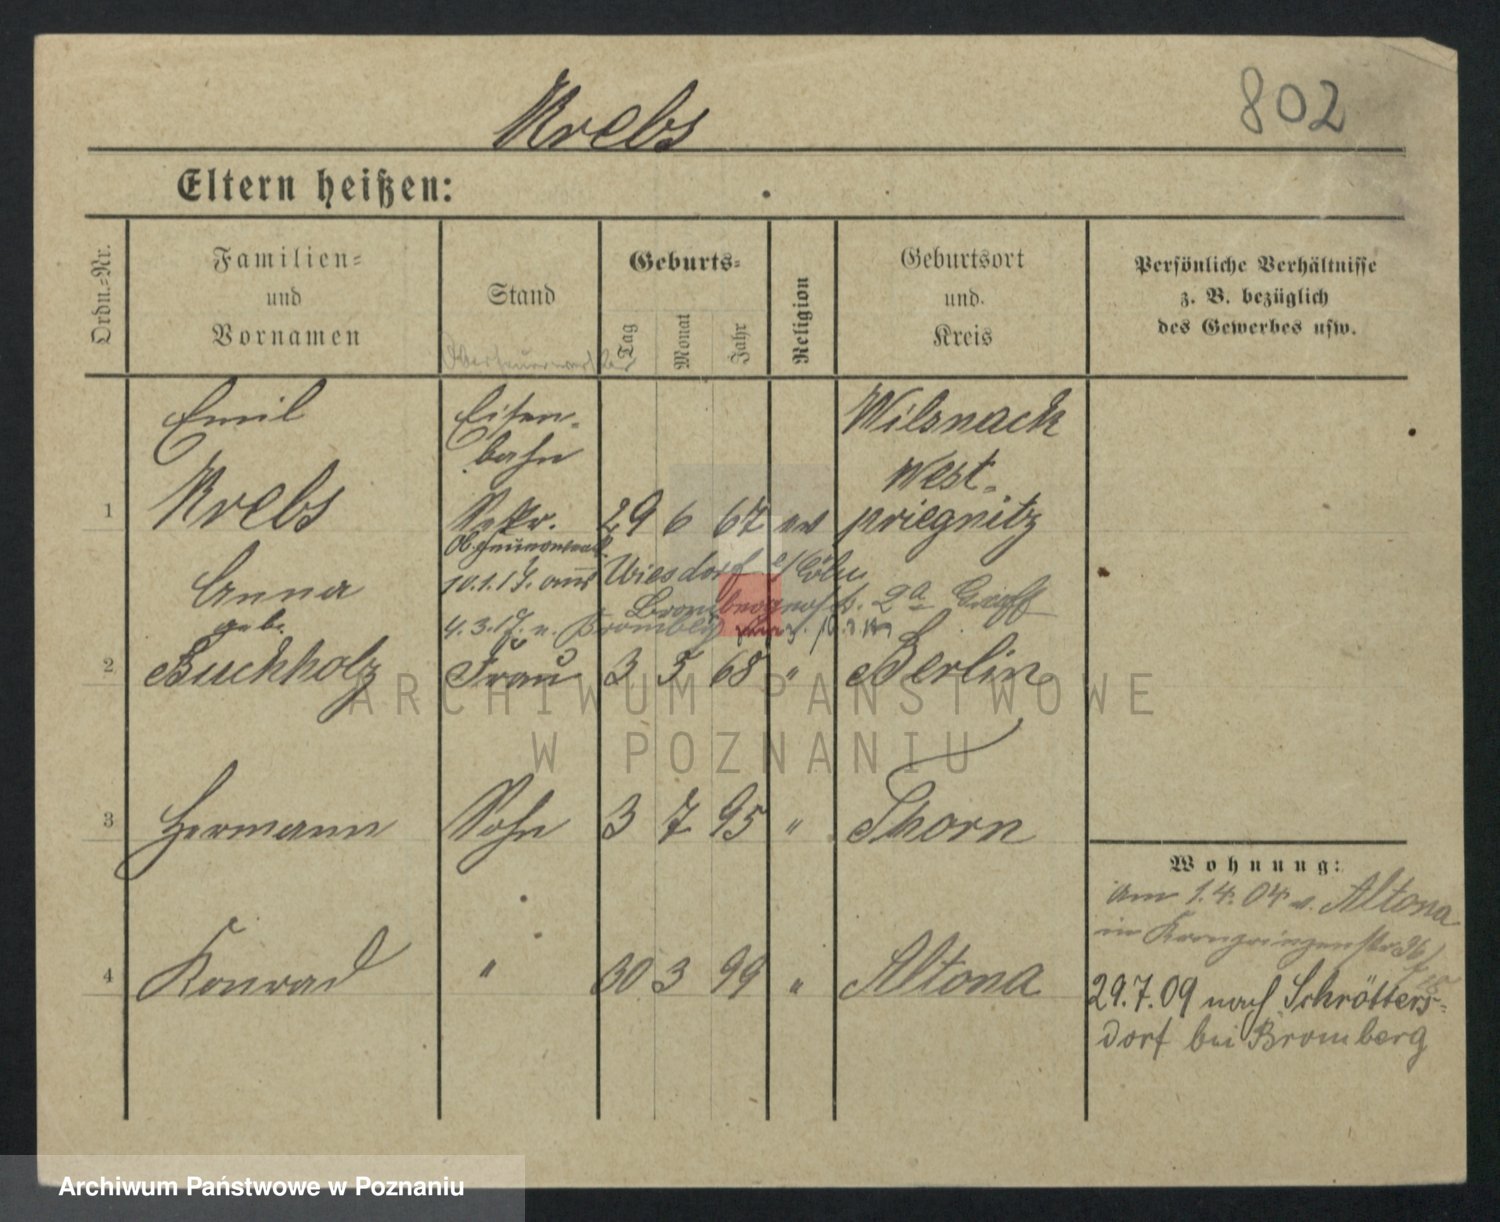 Krebs
802
Eltern heißen:
Ordn.-Nr.
Familien-
und
Vornamen
Stand
Geburts-
Tag
Monat
Jahr
Religion
Geburtsort
und
Kreis
Persönliche Verhältnisse
z. B. bezüglich
des Gewerbes usw.
Emil
Eisen-
bahn
Wilsnack
West-
1 Krebs Sekr. 29 6 67 ev priegnitz
10.1.17. aus Wiesdorf a/Cöln
Anna
geb.
4.3.17. n. Bromberg
2 Buchholz Frau 3 5 68 " Berlin
3 Hermann Sohn 3 7 95 " Thorn
Wohnung:
am 1.4.04 v. Altona
in Kronprinzenstr. 36
4 Konrad " 30 3 99 " Altona
29.7.09 nach Schrötters-
dorf bei Bromberg
ARCHIWUM PAŃSTWOWE
W POZNANIU
Archiwum Państwowe w Poznaniu